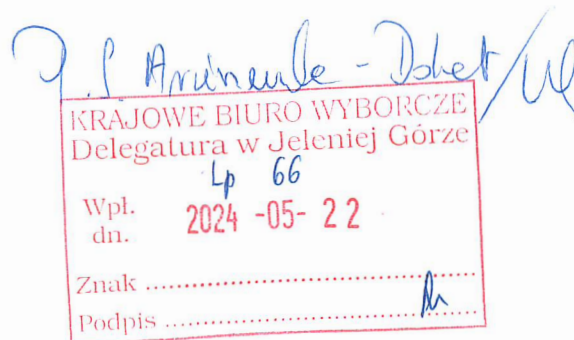 KRAJOWE BIURO WYBORCZE
Delegatura w Jeleniej Górze
Lp 66
Wpł.
dn. 2024 -05- 22
Znak ..........
Podpis ..........